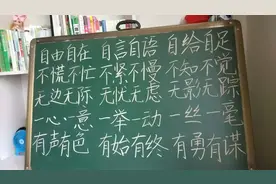 自由自在 自言自语 自给自足
不慌不忙 不紧不慢 不知不觉
无边无际 无忧无虑 无影无踪
一心一意 一举一动 一丝一毫
有声有色 有始有终 有勇有谋